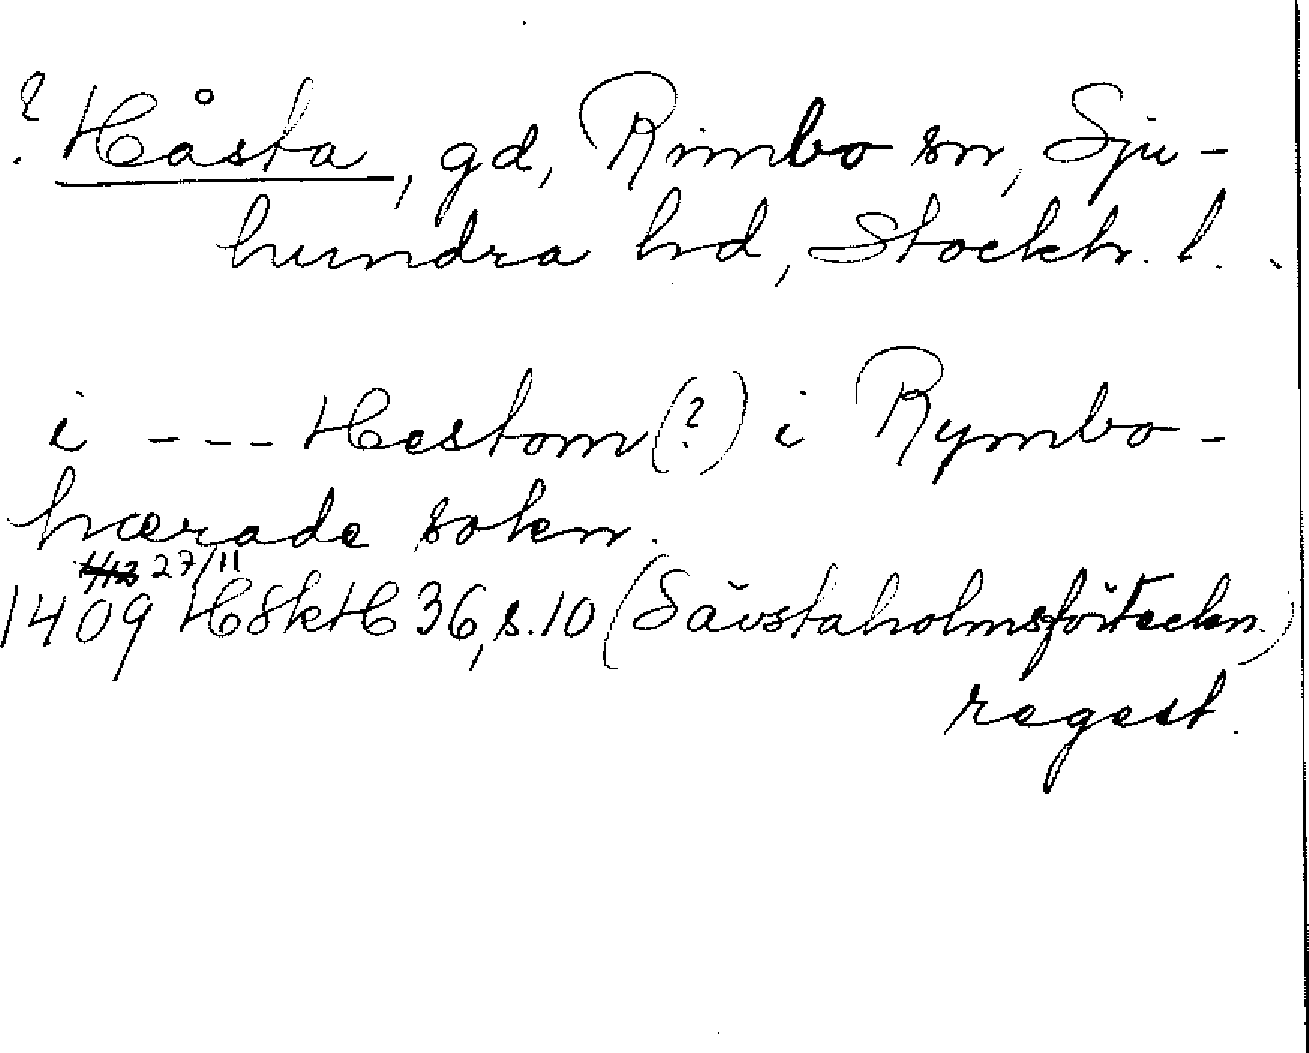 ? Håsta, gd, Rimbo sn, Sju-
hundra hd, Stockh. l.
i --- Hestom (?) i Rymbo-
hærade sokn.
1/12 27/11
1409 HSkH 36, s. 10 (Sävstaholmsförteckn.)
regest.